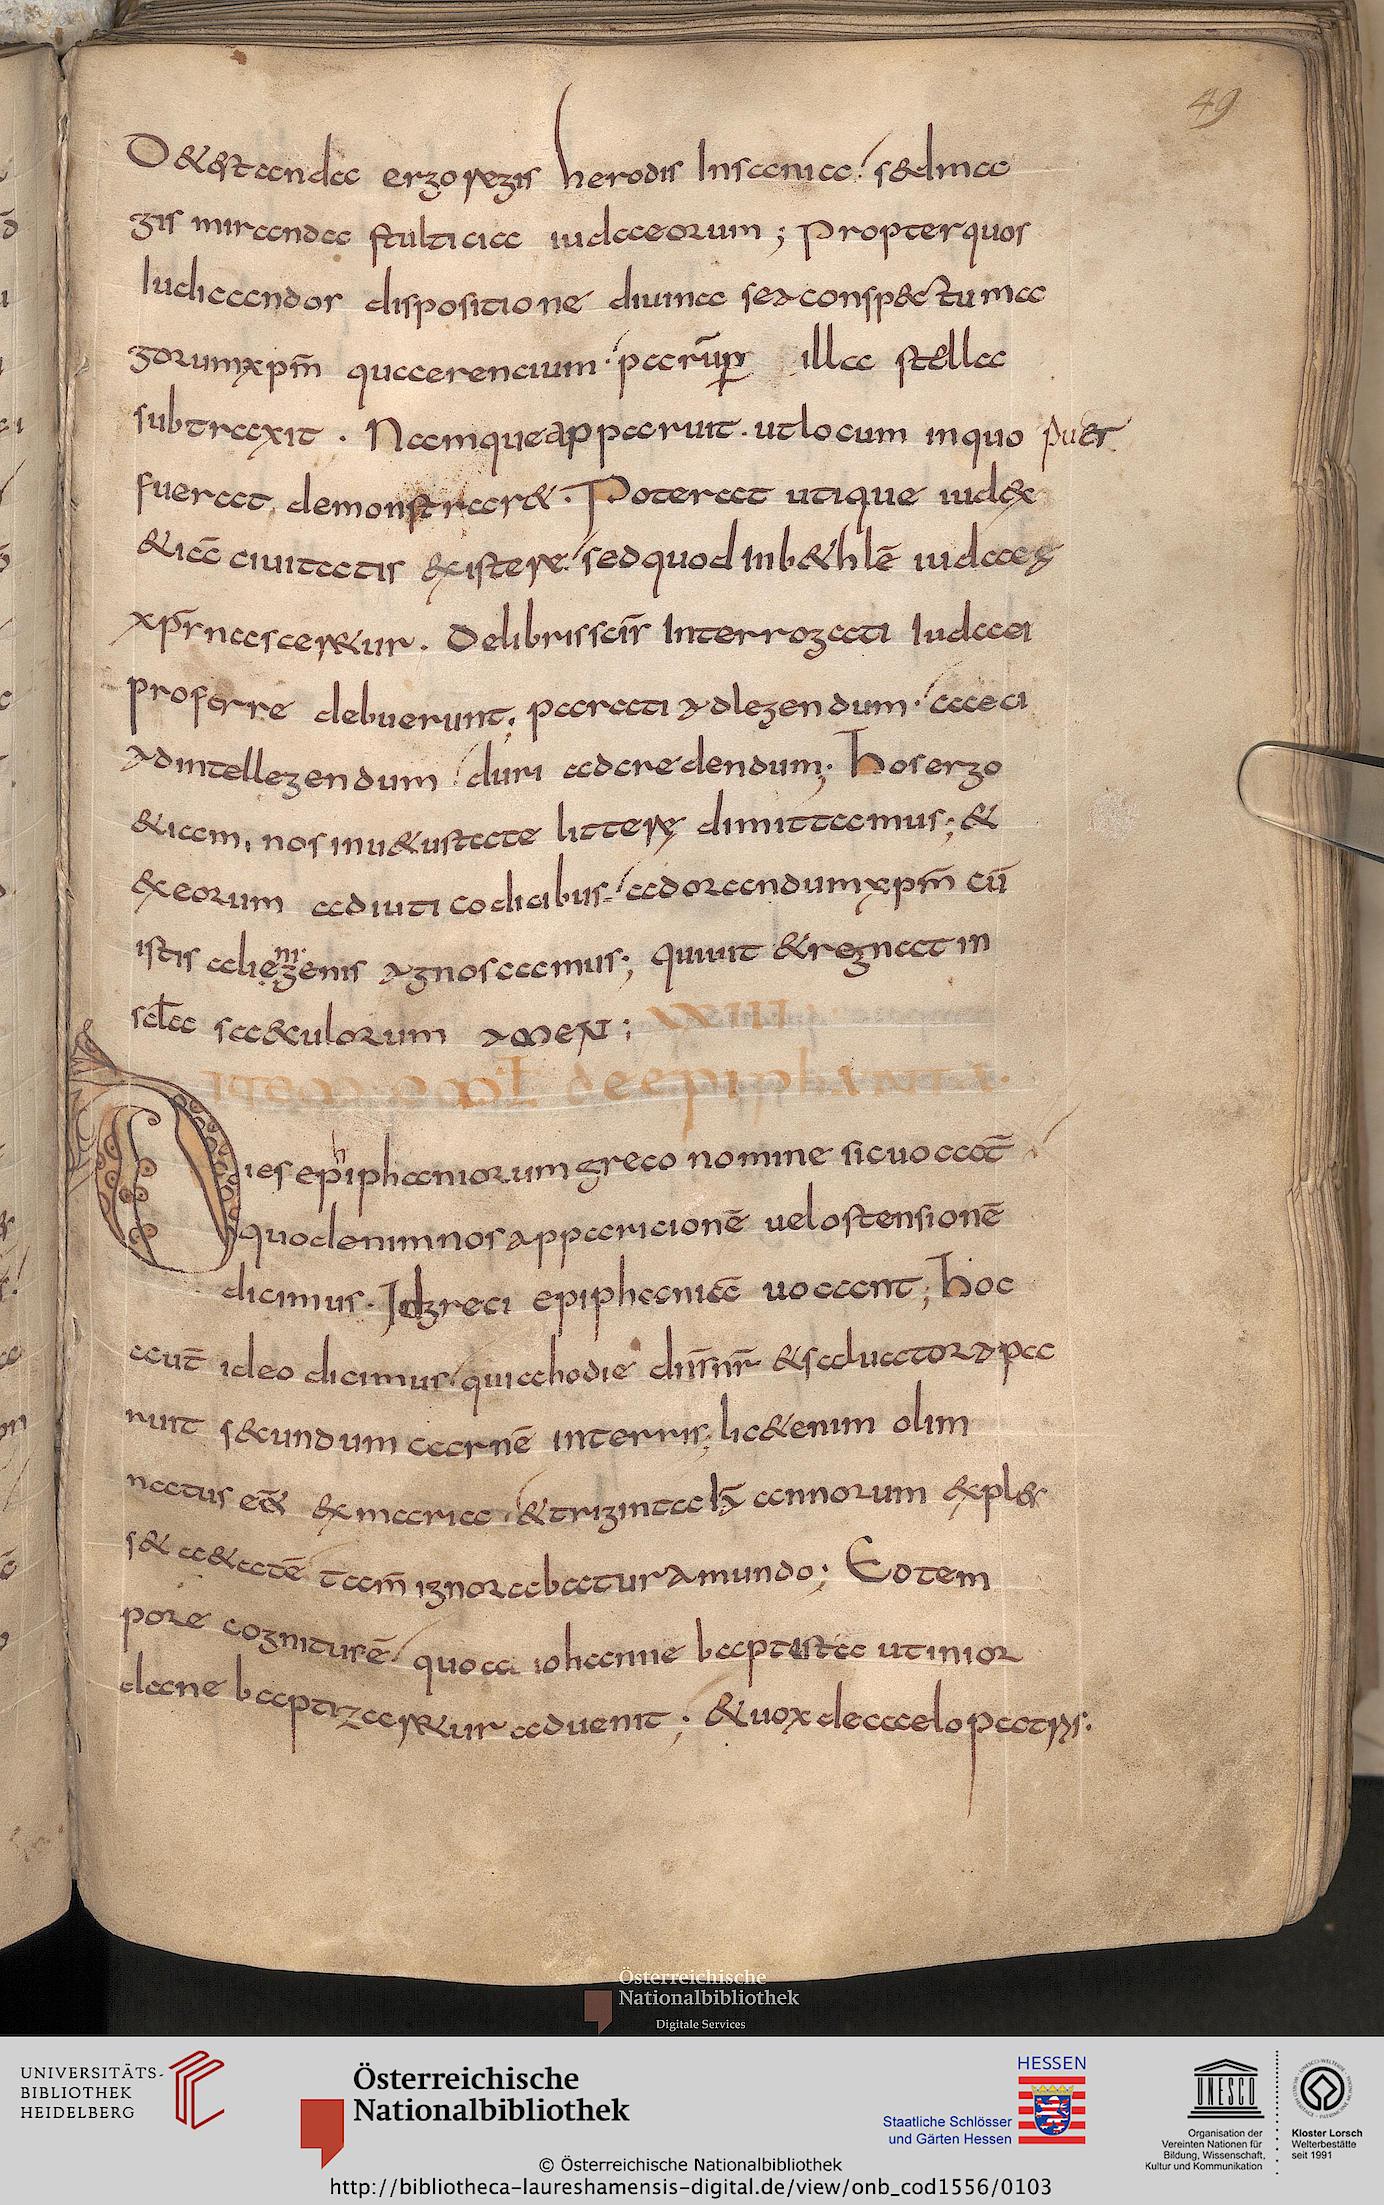 49
D&estanda ergo regis herodis Insania· sedma
gis miranda stulticia iudaeorum; Propterquos
Iudicandos dispositione diuina sedconspectuma
gorumxp̄m quaerencium· parū illa stella
subtraxit · Namqueapparuit· utlocum inquo puer
fuerat, demonstrar&· Poterat utique iudex
&iā ciuitatis existere· sedquod inb&hlē iudaeę
xp̄s nascer&ur· Delibris scīs Interrogati Iudaei
proferre debuerunt; parati adlegendum· caeci
adintellegendum duri adcredendum; Hos ergo
&iam, nos inu&ustate litterę dimittamus; &
exeorum adiuti codicibus· adorandumxp̄m cū
istis alienigenis agnoscamus; quiuit &regnat in
scl̄a saeculorum amen; XXIIII
item omel̄ de epiphania·
Dies epiphaniorum greco nomine sicuocat̄
quodonimnos appariccionē uelostensionē
dicimus· Id greci epiphaniā uocant; Hoc
aut̄ ideo dicimus quiahodie dn̄s nr̄ &saluatorapa
ruit secundum carnē interris; lic&enim olim
natus eēt exmaria &triginta iā annorum expl&
s& a&atē tam̄ ignorabatur amundo; Eotem
pore cognitusē quoa iohanne baptista utinior
dane baptizar&ur aduenit; &uox decaelo patris·
Österreichische
Nationalbibliothek
Digitale Services
UNIVERSITÄTS-
BIBLIOTHEK
HEIDELBERG
Österreichische
Nationalbibliothek
HESSEN
Staatliche Schlösser
und Gärten Hessen
UNESCO
Organisation der
Vereinten Nationen für
Bildung, Wissenschaft,
Kultur und Kommunikation
Kloster Lorsch
Welterbestätte
seit 1991
© Österreichische Nationalbibliothek
http://bibliotheca-laureshamensis-digital.de/view/onb_cod1556/0103